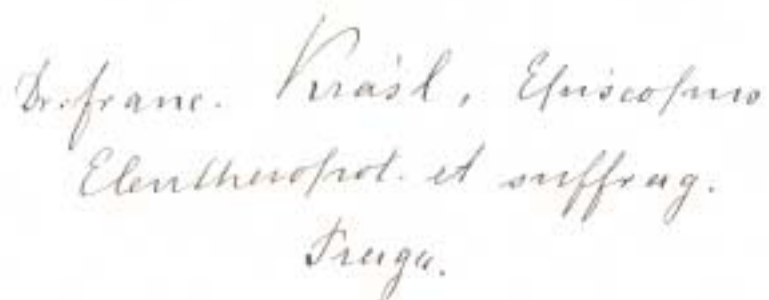 Dr. franc. Krásl, Episcopus
Eleutheropol. et suffrag.
Praga.